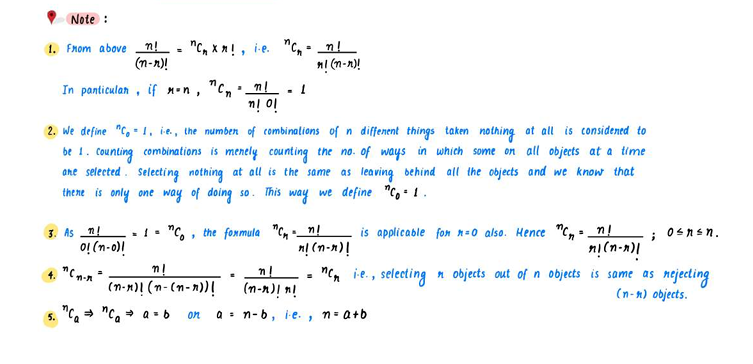 Note :
1. From above n!/(n-r)! = ⁿCᵣ × r! , i.e. ⁿCᵣ = n!/r!(n-r)!
In particular , if r=n , ⁿCₙ = n!/n! 0! = 1
2. We define ⁿC₀ = 1, i.e., the number of combinations of n different things taken nothing at all is considered to
be 1. Counting combinations is merely counting the no. of ways in which some or all objects at a time
are selected. Selecting nothing at all is the same as leaving behind all the objects and we know that
there is only one way of doing so. This way we define ⁿC₀ = 1.
3. As n!/0!(n-0)! = 1 = ⁿC₀ , the formula ⁿCᵣ = n!/r!(n-r)! is applicable for r=0 also. Hence ⁿCᵣ = n!/r!(n-r)! ; 0≤r≤n.
4. ⁿCₙ₋ᵣ = n!/(n-r)!(n-(n-r))! = n!/(n-r)! r! = ⁿCᵣ i.e., selecting r objects out of n objects is same as rejecting
(n-r) objects.
5. ⁿCₐ ⇒ ⁿCₐ ⇒ a=b or a = n-b, i.e., n = a+b